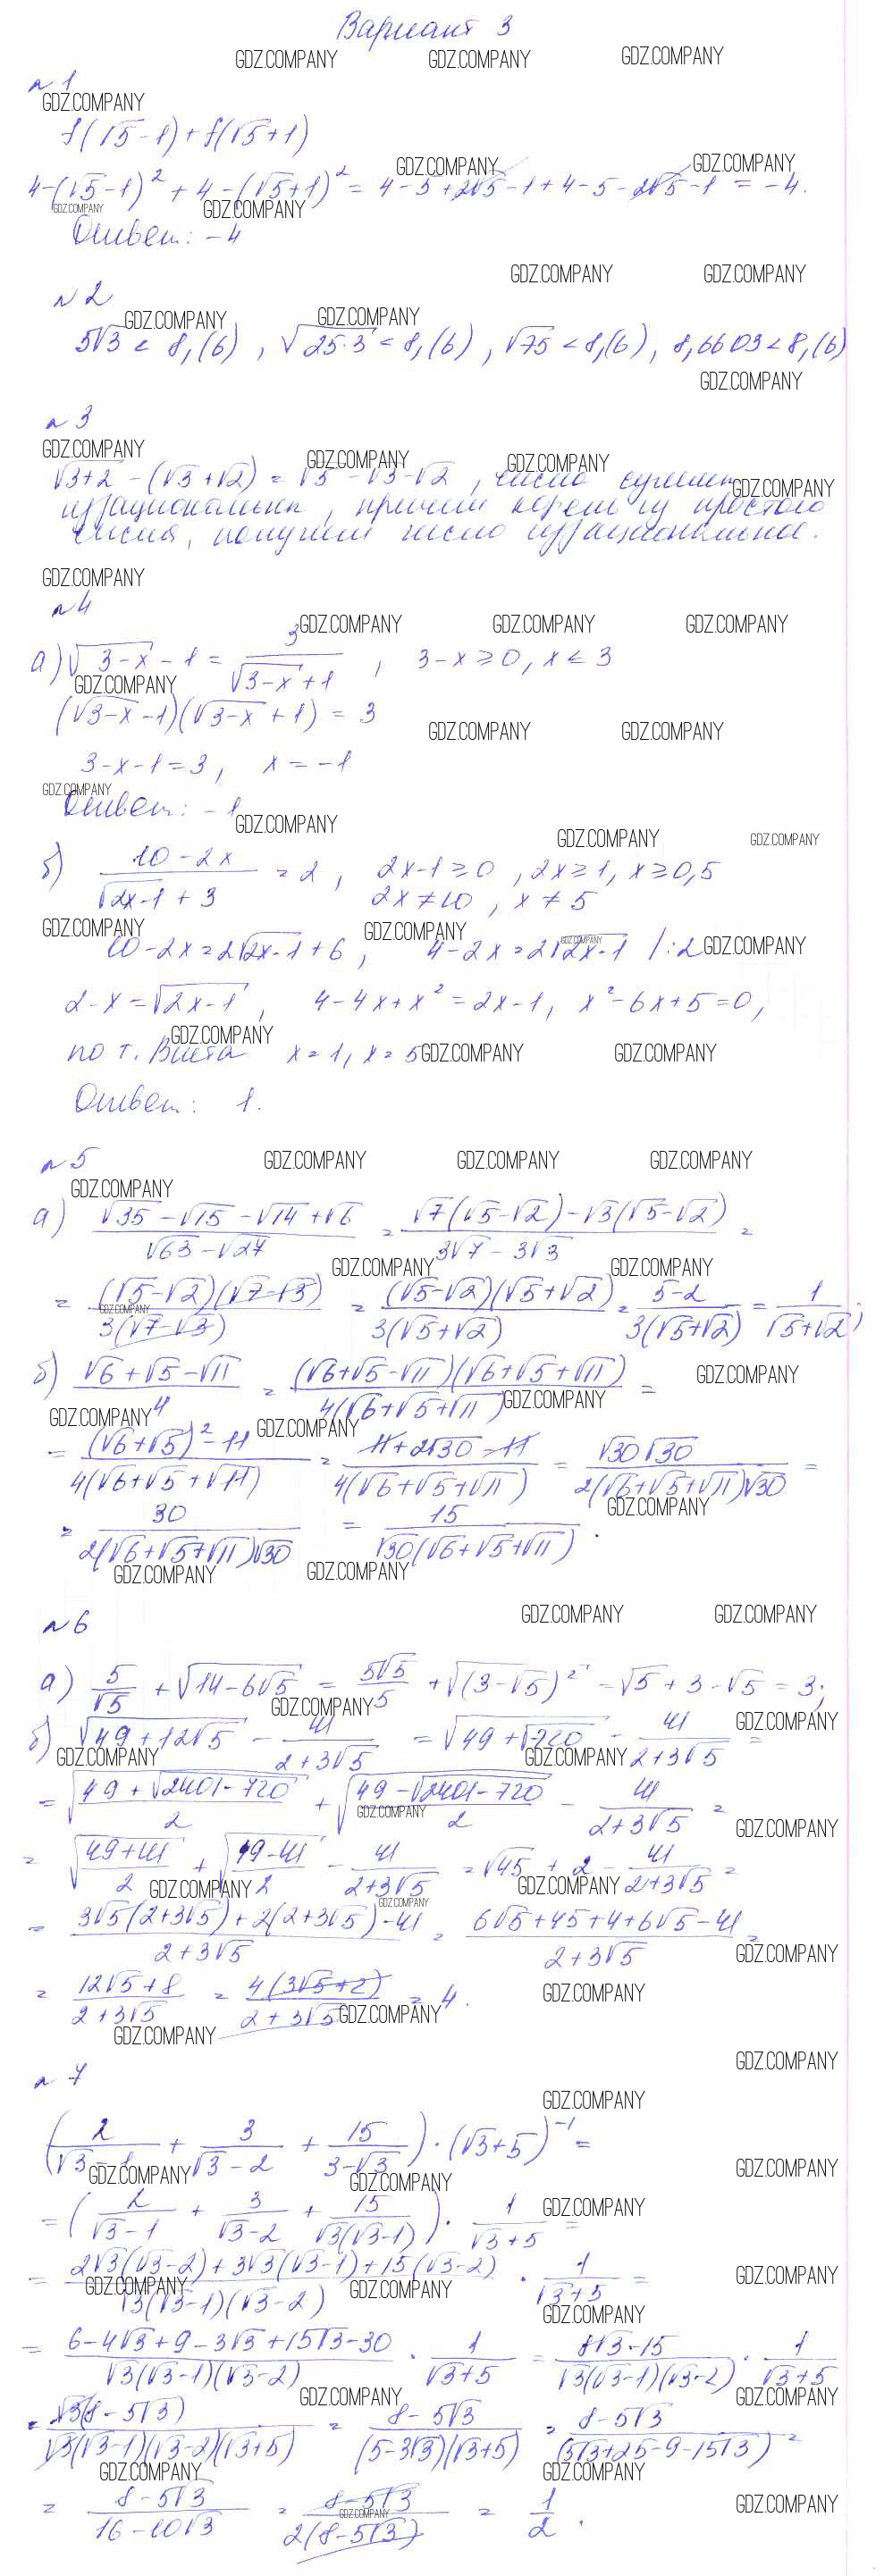 Вариант 3
GDZ.COMPANY GDZ.COMPANY GDZ.COMPANY
№1
GDZ.COMPANY
f(√5-1)+f(√5+1)
GDZ.COMPANY GDZ.COMPANY
4-(√5-1)²+4-(√5+1)²=4-5+2√5-1+4-5-2√5-1=-4.
GDZ.COMPANY GDZ.COMPANY
Ответ: -4
GDZ.COMPANY GDZ.COMPANY
№2
GDZ.COMPANY GDZ.COMPANY
5√3 < 8,(6), √25·3 < 8,(6), √75 < 8,(6), 8,6603 < 8,(6)
GDZ.COMPANY
№3
GDZ.COMPANY GDZ.COMPANY GDZ.COMPANY
√3+2 -(√3+√2) = √5 -√3-√2, число
GDZ.COMPANY
причем корень из простого
числа, получим число иррациональное.
GDZ.COMPANY
№4
GDZ.COMPANY GDZ.COMPANY GDZ.COMPANY
а) √3-x - 1 = 3/(√3-x+1), 3-x≥0, x≤3
GDZ.COMPANY
(√3-x -1)(√3-x +1) = 3
GDZ.COMPANY GDZ.COMPANY
3-x-1=3, x=-1
GDZ.COMPANY
Ответ: -1
GDZ.COMPANY GDZ.COMPANY GDZ.COMPANY
б) (10-2x)/(√2x-1 + 3) = 2, 2x-1≥0, 2x≥1, x≥0,5
2x≠10, x≠5
GDZ.COMPANY GDZ.COMPANY GDZ.COMPANY GDZ.COMPANY
10-2x=2√2x-1+6, 4-2x=2√2x-1 /:2
2-x=√2x-1, 4-4x+x²=2x-1, x²-6x+5=0,
GDZ.COMPANY
по т. Виета x=1, x=5
GDZ.COMPANY GDZ.COMPANY
Ответ: 1.
№5
GDZ.COMPANY GDZ.COMPANY GDZ.COMPANY
GDZ.COMPANY
а) (√35-√15-√14+√6)/(√63-√27) = (√7(√5-√2)-√3(√5-√2))/(3√7-3√3) =
GDZ.COMPANY GDZ.COMPANY
= ((√5-√2)(√7-√3))/(3(√7-√3)) = ((√5-√2)(√5+√2))/(3(√5+√2)) = (5-2)/(3(√5+√2)) = 1/(√5+√2);
GDZ.COMPANY
б) (√6+√5-√11)/4 = ((√6+√5-√11)(√6+√5+√11))/(4(√6+√5+√11)) =
GDZ.COMPANY GDZ.COMPANY
GDZ.COMPANY GDZ.COMPANY
= ((√6+√5)²-11)/(4(√6+√5+√11)) = (11+2√30-11)/(4(√6+√5+√11)) = (√30√30)/(2(√6+√5+√11)√30) =
GDZ.COMPANY
= 30/(2(√6+√5+√11)√30) = 15/(√30(√6+√5+√11)).
GDZ.COMPANY GDZ.COMPANY
GDZ.COMPANY GDZ.COMPANY
№6
а) 5/√5 + √14-6√5 = 5√5/5 + √(3-√5)² = √5+3-√5 = 3;
GDZ.COMPANY GDZ.COMPANY
б) √49+12√5 - 41/(2+3√5) = √49+√720 - 41/(2+3√5) =
GDZ.COMPANY GDZ.COMPANY
= √(49+√2401-720)/2 + √(49-√2401-720)/2 - 41/(2+3√5) =
GDZ.COMPANY GDZ.COMPANY
= √(49+41)/2 + √(49-41)/2 - 41/(2+3√5) = √45 + 2 - 41/(2+3√5) =
GDZ.COMPANY GDZ.COMPANY
GDZ.COMPANY
= (3√5(2+3√5)+2(2+3√5)-41)/(2+3√5) = (6√5+45+4+6√5-41)/(2+3√5) =
GDZ.COMPANY
= (12√5+8)/(2+3√5) = (4(3√5+2))/(2+3√5) = 4.
GDZ.COMPANY
GDZ.COMPANY GDZ.COMPANY
GDZ.COMPANY
№7
GDZ.COMPANY
(2/(√3-1) + 3/(√3-2) + 15/(3-√3))·(√3+5)⁻¹ =
GDZ.COMPANY GDZ.COMPANY GDZ.COMPANY
= (2/(√3-1) + 3/(√3-2) + 15/(√3(√3-1)))·1/(√3+5) =
GDZ.COMPANY
= (2√3(√3-2)+3√3(√3-1)+15(√3-2))/(√3(√3-1)(√3-2)) · 1/(√3+5) =
GDZ.COMPANY GDZ.COMPANY GDZ.COMPANY
GDZ.COMPANY
= (6-4√3+9-3√3+15√3-30)/(√3(√3-1)(√3-2)) · 1/(√3+5) = (8√3-15)/(√3(√3-1)(√3-2)) · 1/(√3+5)
GDZ.COMPANY GDZ.COMPANY
= (√3(8-5√3))/(√3(√3-1)(√3-2)(√3+5)) = (8-5√3)/((5-3√3)(√3+5)) = (8-5√3)/(5√3+25-9-15√3) =
GDZ.COMPANY GDZ.COMPANY
= (8-5√3)/(16-10√3) = (8-5√3)/(2(8-5√3)) = 1/2.
GDZ.COMPANY GDZ.COMPANY